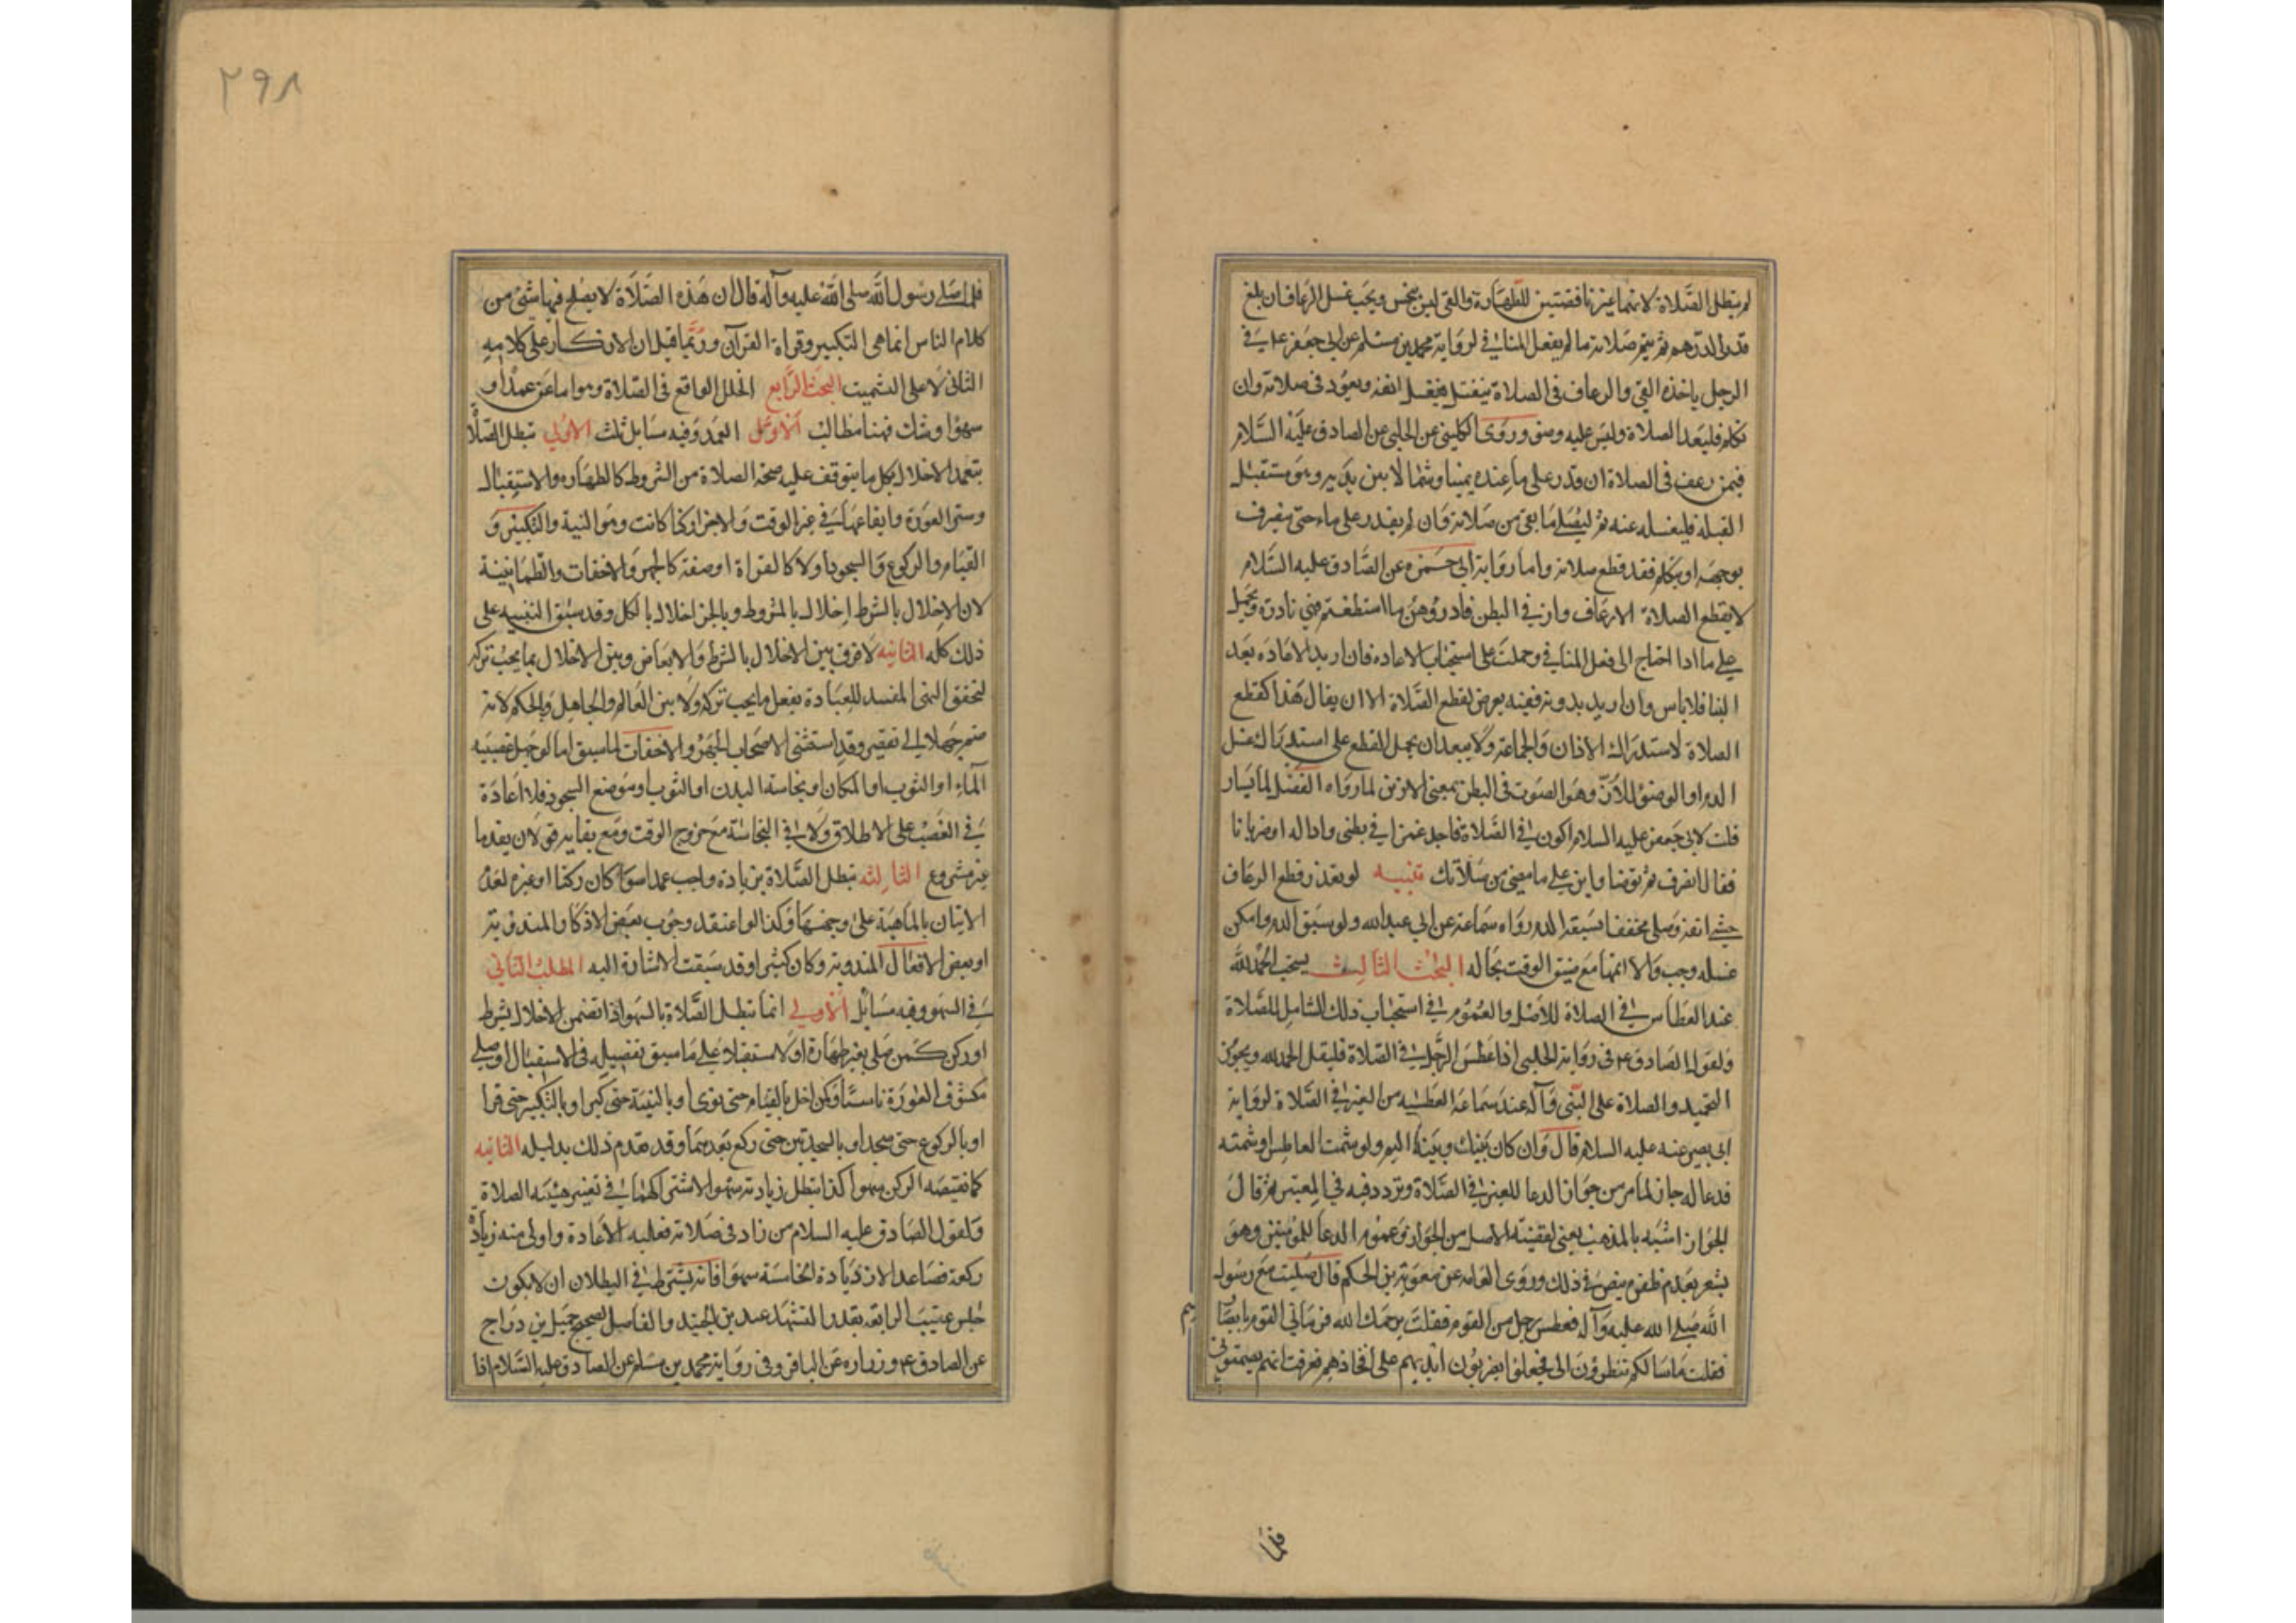 لم تبطل الصلاة لانهما غير ناقضتين للطهارة والقي ليس بنجس ويجب غسل الرعاف ان بلغ
قدر الدرهم ثم يتم صلاته ما لم يفعل المنافي لرواية محمد بن مسلم عن ابي جعفر ع في
الرجل ياخذه القي والرعاف في الصلاة ينفتل فيغسل انفه ويعود في صلاته وان
تكلم فليعد الصلاة وليس عليه وضوء وروى الكليني عن الحلبي عن الصادق عليه السلام
فيمن رعف في الصلاة ان قدر على ما عنده يمينا وشمالا بين يديه وهو مستقبل
القبلة فليغسله عنه ثم ليصلي ما بقي من صلاته وان لم يقدر على ماء حتى ينصرف
بوجهه او يتكلم فقد قطع صلاته واما رواية ابي حمزه عن الصادق عليه السلام
لا يقطع الصلاة الا رعاف واز في البطن فادرؤهن ما استطعتم فهي نادرة وتحمل
على ما اذا احتاج الى فعل المنافي وحملت على استحباب الاعاده فان اريد الاعاده بعد
البنا فلا باس وان اريد بدونه ففيه تعرض لقطع الصلاة الا ان يقال هذا كقطع
الصلاة لاستدراك الاذان والجماعة ولا يبعد ان يحمل القطع على استدراك غسل
الدم او الوضوء للازّ وهو الصوت في البطن بمعنى الازيز لما رواه الفضل بن يسار
قلت لابي جعفر عليه السلام اكون في الصلاة فاجد غمزا في بطني واذا له او ضربانا
فقال انصرف ثم توضا وابن على ما مضى من صلاتك تنبيه لو تعذر قطع الرعاف
حشي انفه وصلى مخففا يسبقه الدم رواه سماعة عن ابي عبد الله ولو سبق الدم وامكن
غسله وجب والا اتمها مع ضيق الوقت بحاله البحث الثالث يستحب الحمد لله
عند العطاس في الصلاة للاصل والعموم في استحباب ذلك الشامل للصلاة
ولقول الصادق ع في رواية الحلبي اذا عطس الرجل في الصلاة فليقل الحمد لله ويجوز
التحميد والصلاة على النبي وآله عند سماعه العطسه من الغير في الصلاة لرواية
ابي بصير عنه عليه السلام قال وان كان بينك وبينه اليم ولو شمت العاطس او شمته
فدعا له جاز لما مر من جواز الدعا للغير في الصلاة وتردد فيه في المعتبر ثم قال
الجواز اشبه بالمذهب يعني لقضيته الاصل من الجواز وعموم الدعا للمؤمنين وهو
يشعر بعدم ظفره بنص في ذلك وروى العامه عن معوية بن الحكم قال صليت مع رسول
الله صلى الله عليه وآله فعطس رجل من القوم فقلت يرحمك الله فرماني القوم بابصارهم
فقلت ما شانكم تنظرون الي فجعلوا يضربون ايديهم على افخاذهم فعرفت انهم يصمتوني
فلما
٢٩٨
فلما صلى رسول الله صلى الله عليه وآله قال ان هذه الصلاة لا يصلح فيها شئ من
كلام الناس انما هي التكبير وقراة القرآن وربما قيل ان الانكار على كلامه
الثاني لا على التشميت البحث الرابع الخلل الواقع في الصلاة وهو اما عن عمد او
سهو او شك فهنا مطالب الاول العمد وفيه مسايل ثلث الاولى تبطل الصلاة
بتعمد الاخلال بكل ما يتوقف عليه صحة الصلاة من الشروط كالطهاره والاستقبال
وستر العورة وايقاعها في غير الوقت والاجزا ركنا كانت وهو النية والتكبير و
القيام والركوع والسجود او لا كالقراة او صفة كالجهر والاخفات والطمانينة
لان الاخلال بالشرط اخلال بالمشروط وبالجز اخلال بالكل وقد سبق التنبيه على
ذلك كله الثانيه لا فرق بين الاخلال بالشرط والابعاض وبين الاخلال بما يجب تركه
لتحقق النهي المفسد للعبادة بفعل ما يجب تركه ولا بين العالم والجاهل بالحكم لانه
ضم جهلا الى تقصير وقد استثنى الاصحاب الجهر والاخفات لما سبق اما لو جهل غصبيه
الماء او الثوب او المكان او نجاسة البدن او الثوب او موضع السجود فلا اعادة
في الغصب على الاطلاق ولا في النجاسة مع خروج الوقت ومع بقايه قولان يقدما
غير مشروع الثالثه تبطل الصلاة بزيادة واجب عمدا سوا كان ركنا او غيره لعدم
الاتيان بالماهية على وجهها وكذا لو اعتقد وجوب بعض الاذكار المندوبة
او بعض الافعال المندوبة وكان كثيرا وقد سبقت الاشارة اليه المطلب الثاني
في السهو وفيه مسايل الاولى انما تبطل الصلاة بالسهو اذا تضمن الاخلال بشرط
او ركن كمن صلى بغير طهارة او لا مستقبلا على ما سبق تفصيله في الاستقبال او صلى
مكشوف العورة ناسيا وكمن اخل بالقيام حتى نوى او بالنية حتى كبر او بالتكبير حتى قرا
او بالركوع حتى سجد او بالسجدتين حتى ركع بعدهما وقد تقدم ذلك بدليله الثانيه
كما نقيصه الركن سهوا كذا تبطل زيادته سهوا لاشتراكهما في تغيير هيئة الصلاة
ولقول الصادق عليه السلام من زاد في صلاته فعليه الاعادة واولى منه زيادة
ركعة فصاعدا الا زيادة الخامسة سهوا فانه يشترط في البطلان ان لا يكون
جلس عقيب الرابعة بقدر التشهد عند بن الجنيد والفاضل لصحيح جميل بن دراج
عن الصادق ع وزراره عن الباقر وفي رواية محمد بن مسلم عن الصادق عليه السلام اذا